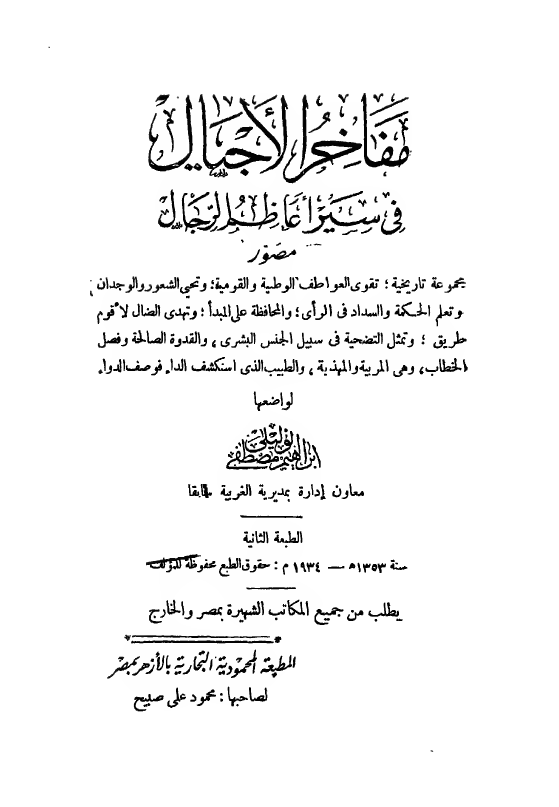 مفاخر الأجيال
في سير أعاظم الرجال
مصور
مجموعة تاريخية ؛ تقوى العواطف الوطنية والقومية ؛ وتحيي الشعور والوجدان
وتعلم الحكمة والسداد فى الرأى ؛ والمحافظة على المبدأ ؛ وتهدى الضال لأقوم
طريق ؛ وتمثل التضحية فى سبيل الجنس البشرى ، والقدوة الصالحة وفصل
الخطاب ، وهى المربية والمهذبة ، والطبيب الذى استكشف الداء فوصف الدواء
لواضعها
ابراهيم مصطفى الوليلى
معاون إدارة بمديرية الغربية سابقا
الطبعة الثانية
سنة ١٣٥٣ هـ — ١٩٣٤ م : حقوق الطبع محفوظة للمؤلف
يطلب من جميع المكاتب الشهيرة بمصر والخارج
المطبعة المحمودية التجارية بالأزهر بمصر
لصاحبها : محمود على صبيح